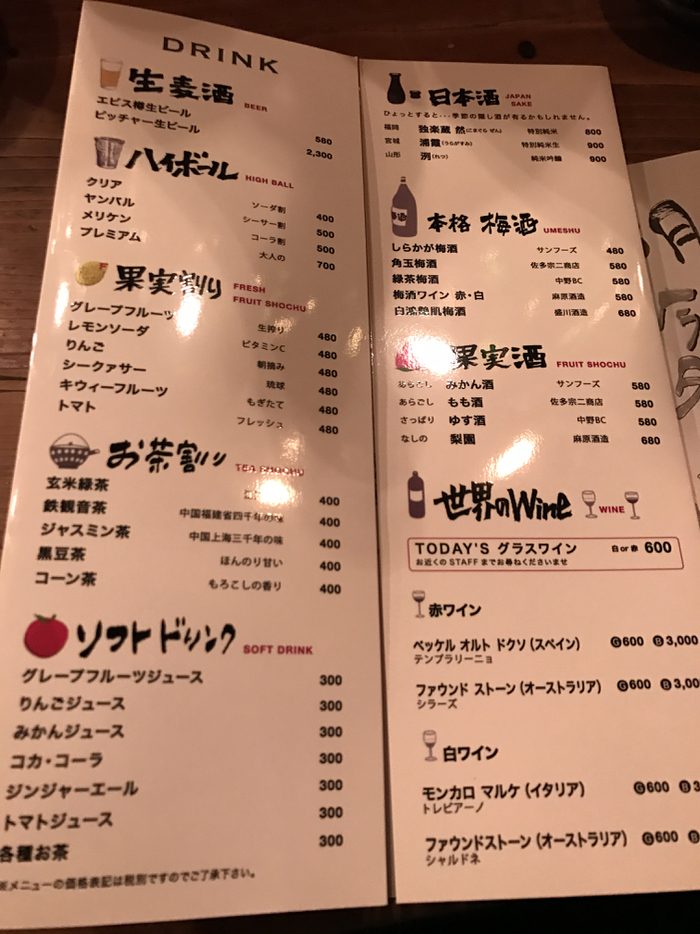 DRINK
生麦酒 BEER
エビス樽生ビール 580
ピッチャー生ビール 2,300
ハイボール HIGH BALL
クリア ソーダ割 400
ヤンバル シーサー割 500
メリケン コーラ割 500
プレミアム 大人の 700
果実割り FRESH FRUIT SHOCHU
グレープフルーツ 生搾り 480
レモンソーダ ビタミンC 480
りんご 朝摘み 480
シークァサー 琉球 480
キウィーフルーツ もぎたて 480
トマト フレッシュ 480
お茶割り TEA SHOCHU
玄米緑茶 400
鉄観音茶 中国福建省四千年の味 400
ジャスミン茶 中国上海三千年の味 400
黒豆茶 ほんのり甘い 400
コーン茶 もろこしの香り 400
ソフトドリンク SOFT DRINK
グレープフルーツジュース 300
りんごジュース 300
みかんジュース 300
コカ・コーラ 300
ジンジャーエール 300
トマトジュース 300
各種お茶 300
※メニューの価格表記は税別ですのでご了承下さい。
日本酒 JAPAN SAKE
ひょっとすると・・・季節の隠し酒が有るかもしれません。
福岡 独楽蔵 然(こまぐら ぜん) 特別純米 800
宮城 浦霞(うらがすみ) 特別純米生 900
山形 洌(れつ) 純米吟醸 900
本格 梅酒 UMESHU
しらかが梅酒 サンフーズ 480
角玉梅酒 佐多宗二商店 580
緑茶梅酒 中野BC 580
梅酒ワイン 赤・白 麻原酒造 580
白 艶肌梅酒 盛川酒造 680
果実酒 FRUIT SHOCHU
あらごし みかん酒 サンフーズ 580
あらごし もも酒 佐多宗二商店 580
さっぱり ゆず酒 中野BC 580
なしの 梨園 麻原酒造 680
世界のWine WINE
TODAY'S グラスワイン 白 or 赤 600
お近くの STAFF までお尋ねくださいませ
赤ワイン
ベッケル オルト ドクソ (スペイン) G600 B3,000
テンプラリーニョ
ファウンド ストーン (オーストラリア) G600 B3,00
シラーズ
白ワイン
モンカロ マルケ (イタリア) G600 B3
トレビアーノ
ファウンドストーン (オーストラリア) G600 B
シャルドネ